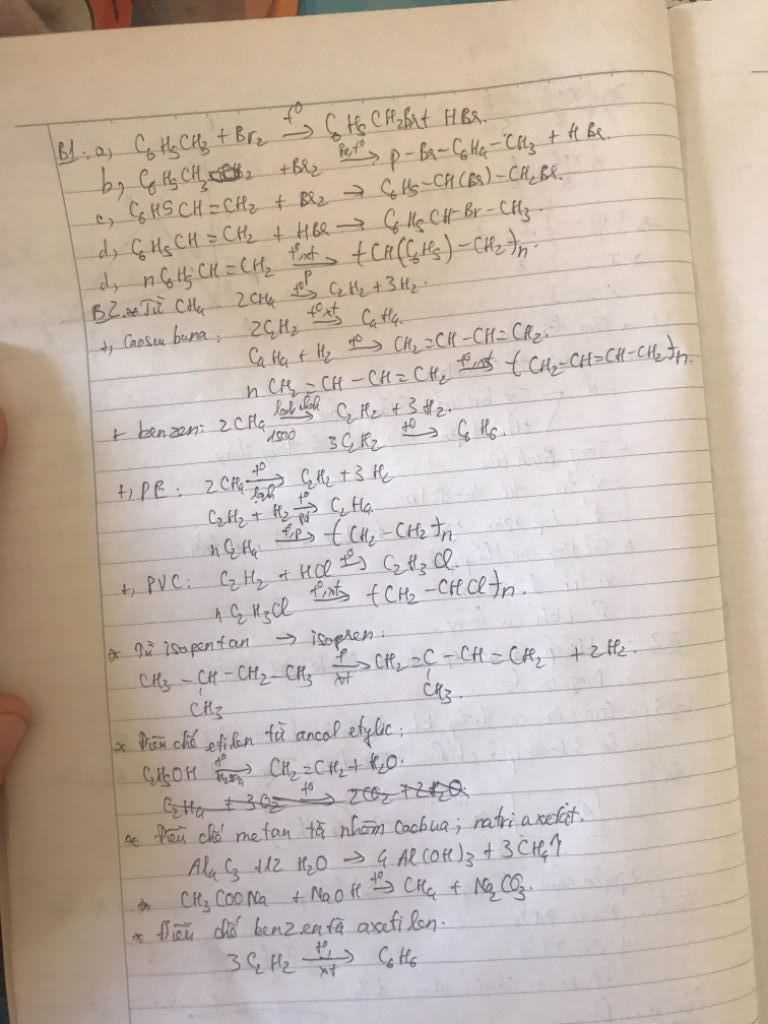 B1: a, C6H5CH3 + Br2 –t°→ C6H5CH2Br + HBr.
b, C6H5CH3 + Br2 –Fe, t°→ p-Br-C6H4-CH3 + HBr.
c, C6H5CH=CH2 + Br2 → C6H5-CH(Br)-CH2Br.
d, C6H5CH=CH2 + HBr → C6H5CH-Br-CH3.
d, nC6H5CH=CH2 –t°,xt, p→ –(CH(C6H5)-CH2–)n.
B2. * Từ CH4 2CH4 –t°→ C2H2 + 3H2.
+, Caosu buna: 2C2H2 –t°,xt→ C4H4.
C4H4 + H2 –t°→ CH2=CH-CH=CH2.
nCH2=CH-CH=CH2 –t°,xt→ –(CH2-CH=CH-CH2–)n.
+ benzen: 2CH4 –lạnh, 1500→ C2H2 + 3H2.
3C2H2 –t°→ C6H6.
+, PE: 2CH4 –t°, lạnh→ C2H2 + 3H2
C2H2 + H2 –t°, Pd→ C2H4
nC2H4 –t°,p→ –(CH2-CH2–)n
+, PVC: C2H2 + HCl –t°→ C2H3Cl.
nC2H3Cl –t°,xt→ –(CH2-CHCl–)n.
* Từ isopentan → isopren:
CH3-CH-CH2-CH3 –t°, xt→ CH2=C-CH=CH2 + 2H2.
CH3 CH3.
* Điều chế etilen từ ancol etylic:
C2H5OH –t°, H2SO4→ CH2=CH2 + H2O.
C2H4 + 3O2 –t°→ 2CO2 + 2H2O
* Điều chế metan từ nhôm cacbua; natri axetat.
Al4C3 + 12H2O → 4Al(OH)3 + 3CH4↑
* CH3COONa + NaOH –t°→ CH4 + Na2CO3.
* Điều chế benzen từ axetilen.
3C2H2 –t°, xt→ C6H6